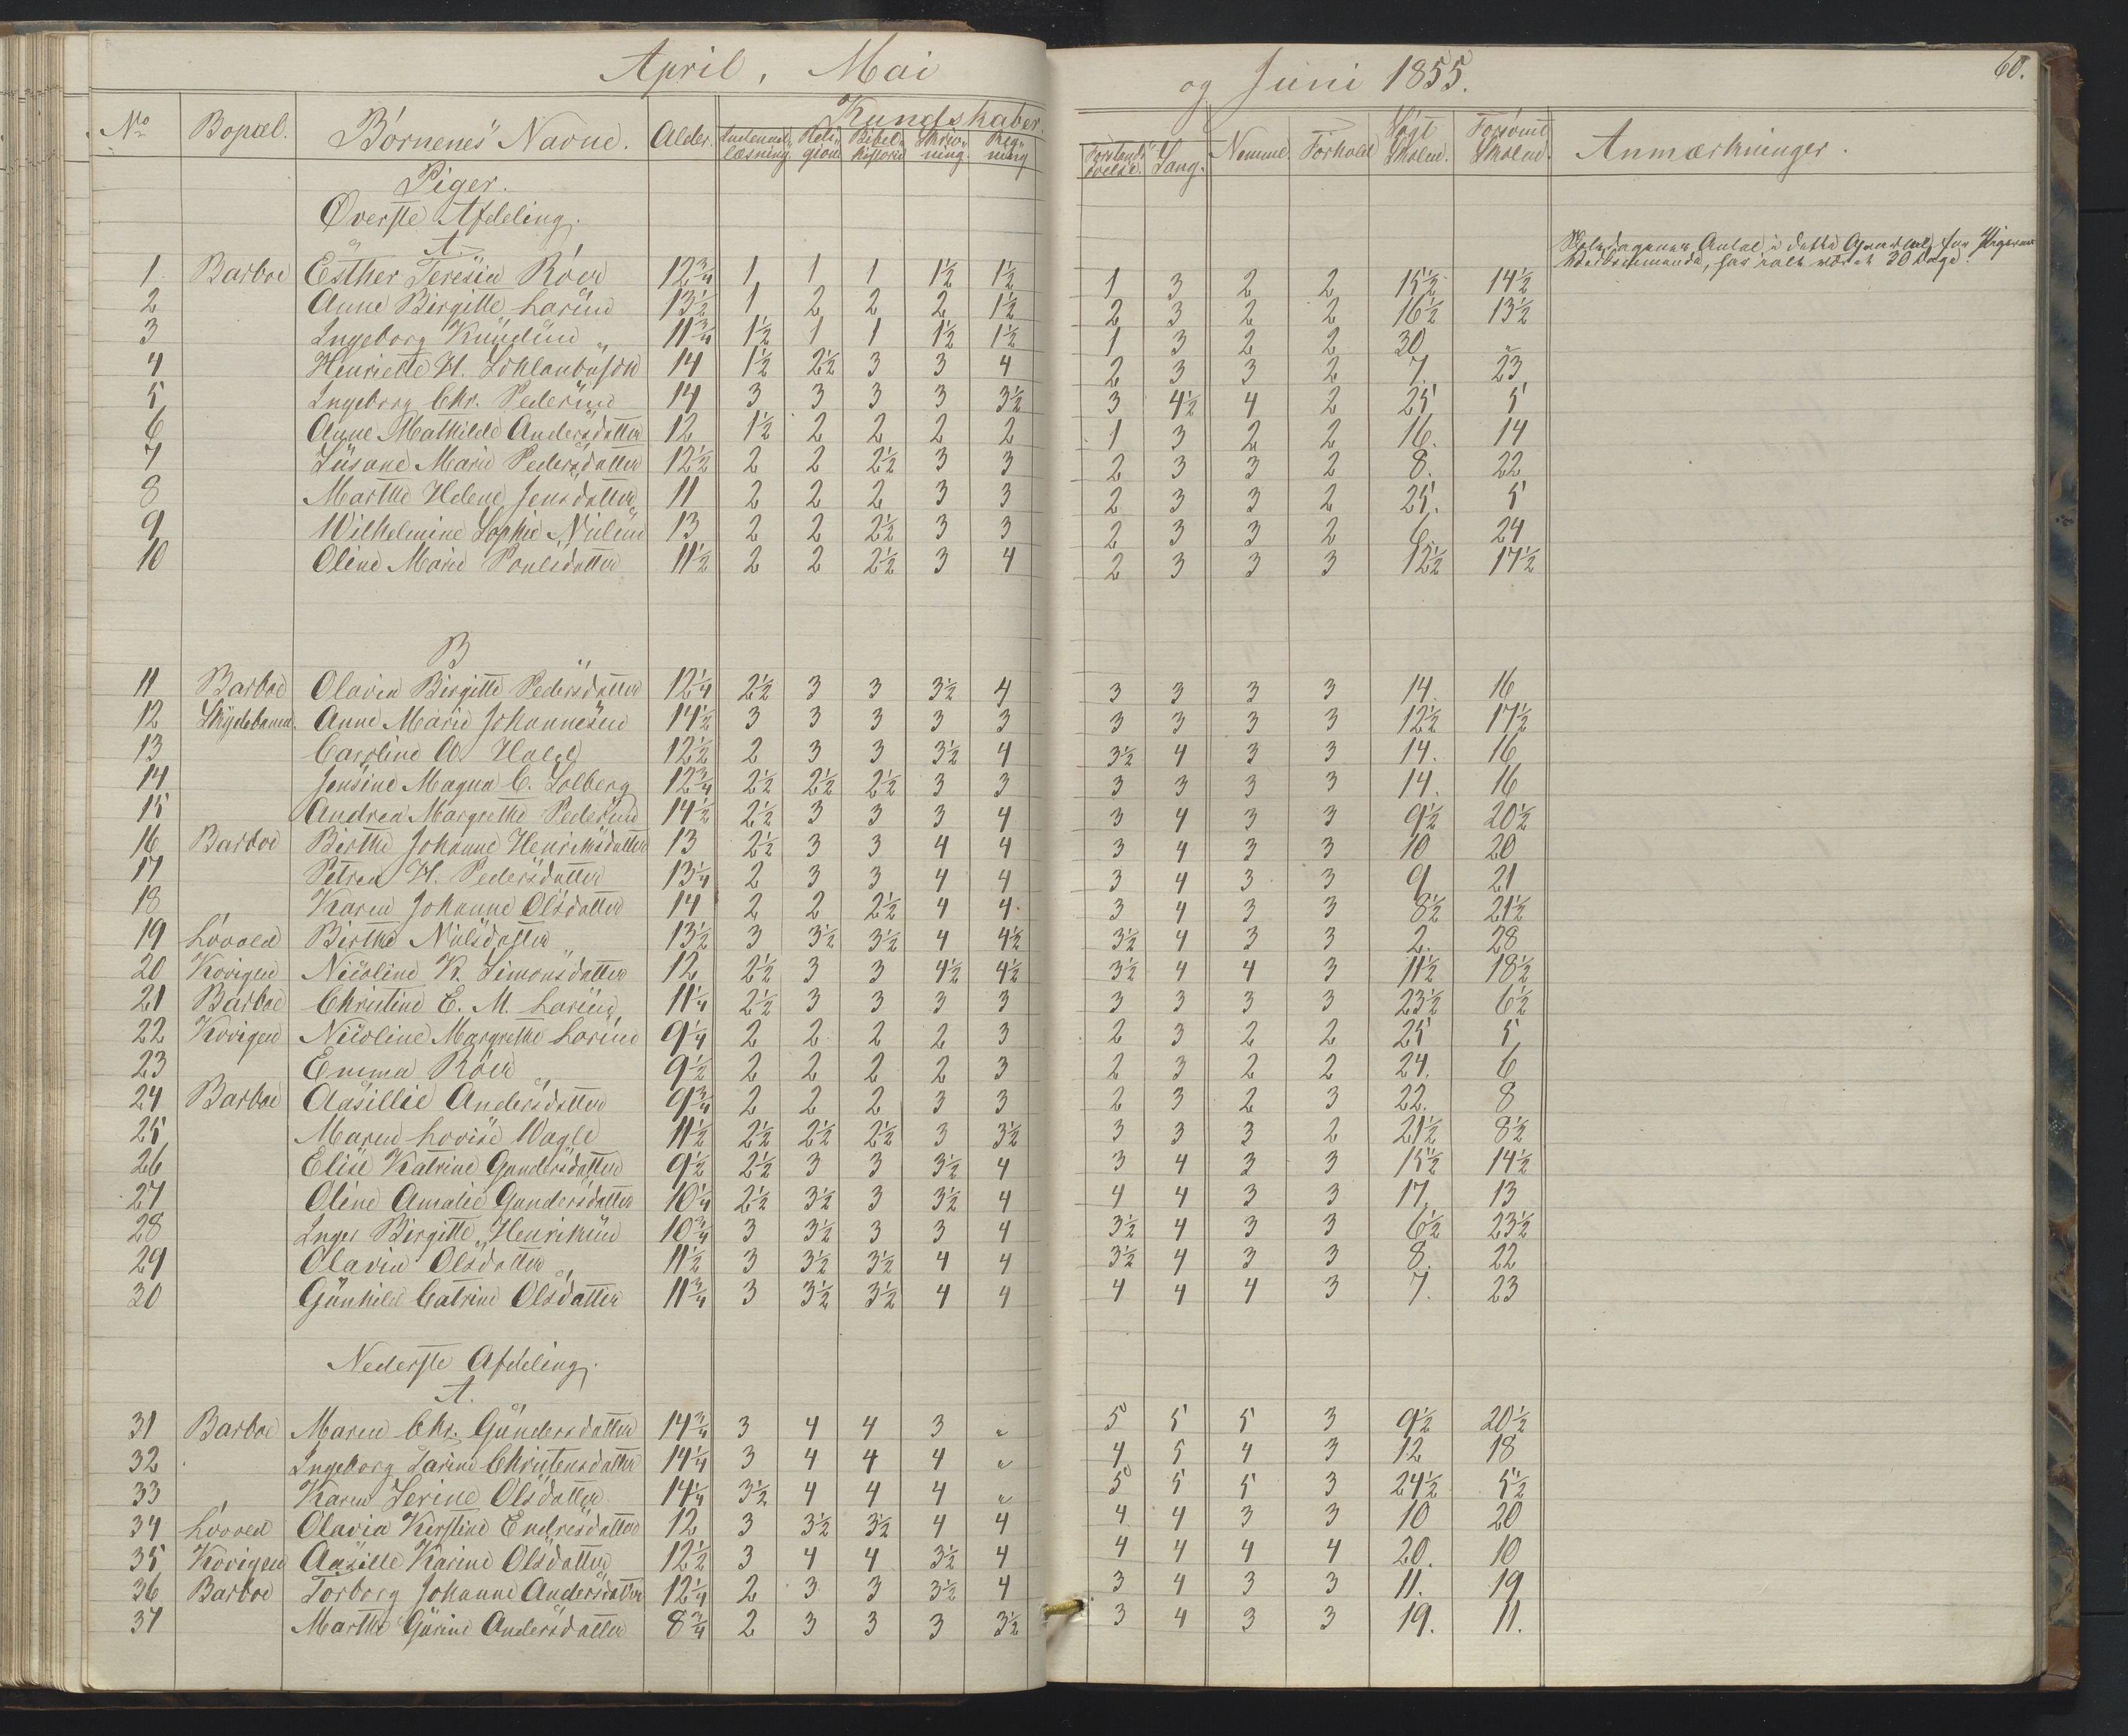 April, Mai og Juni 1855. 60.
No Bopæl. Börnenes Navne. Alder. Kundskaber.
Indenads-læsning Reli-gion Bibel-historie Skriv-ning Reg-ning Forstands-övelse. Sang. Nemme Forhold Sögt Skolen. Forsömt Skolen. Anmærkninger.
Piger.
Øverste Afdeling.
A.
Skoledagenes Antal i dette Qvartal for Pigernes Vedkommende, har ialt været 30 Dage.
1 Barboe Esther Teresia Röer 12¾ 1 1 1 1½ 1½ 1 3 2 2 15½ 14½
2 Anne Birgitte Larsen 13½ 1 2 2 2 1½ 2 3 2 2 16½ 13½
3 Ingeborg Knudsen 11¾ 1½ 1 1 1½ 1½ 1 3 2 2 30 "
4 Henriette H. 14 1½ 2½ 3 3 4 2 3 3 2 7. 23
5 Ingeborg Chr. Pedersen 14 3 3 3 3 3½ 3 4½ 4 2 25 5
6 Anne Mathilde Andersdatter 12 1½ 2 2 2 2 1 3 2 2 16. 14
7 Susane Marie Pedersdatter 12½ 2 2 2½ 3 3 2 3 3 2 8. 22
8 Marthe Helene Jensdatter 11 2 2 2 3 3 2 3 3 2 25. 5
9 Wilhelmine Sophie Nielsen 13 2 2 2½ 3 3 2 3 3 2 6. 24
10 Oline Marie Poulsdatter 11½ 2 2 2½ 3 4 2 3 3 3 12½ 17½
B
11 Barboe Olavia Birgitte Pedersdatter 12¼ 2½ 3 3 3½ 4 3 3 3 3 14. 16
12 Skydebanen. Anne Marie Johannesen 14½ 3 3 3 3 3 3 3 3 3 12½ 17½
13 Caroline A. Hald 12½ 2 3 3 3½ 4 3½ 4 3 3 14. 16
14 Jensine Magna C. Solberg 12¾ 2½ 2½ 2½ 3 3 3 3 3 3 14. 16
15 Andrea Margrethe Pedersen 14½ 2½ 3 3 3 4 3 4 3 3 9½ 20½
16 Barboe Birthe Johanne Henriksdatter 13 2½ 3 3 4 4 3 4 3 3 10 20
17 Petrea H. Pedersdatter 13¼ 2 3 3 4 4 3 4 3 3 9 21
18 Karen Johanne Olsdatter 14 2 2 2½ 4 4. 3 4 3 3 8½ 21½
19 Lövold Birthe Nilsdatter 13½ 3 3½ 3½ 4 4½ 3½ 4 3 3 2. 28
20 Kvigen Nicoline K. Simonsdatter 12 2½ 3 3 4½ 4½ 3½ 4 4 3 11½ 18½
21 Barboe Christine E. M. Larsen 11¼ 2½ 3 3 3 3 3 3 3 3 23½ 6½
22 Kvigen Nicoline Margrethe Larsen 9¼ 2 2 2 2 3 2 3 2 2 25 5
23 Emma Röer 9½ 2 2 2 2 3 2 3 2 2 24. 6
24 Barboe Aasillie Andersdatter 9¾ 2 2 2 3 3 2 3 2 3 22. 8
25 Maren Lovise Wagle 11½ 2½ 2½ 2½ 3 3½ 3 3 3 2 21½ 8½
26 Elise Katrine Gundersdatter 9½ 2½ 3 3 3½ 4 3 4 3 3 15½ 14½
27 Oline Amalie Gundersdatter 10¼ 2½ 3½ 3 3½ 4 4 4 3 3 17. 13
28 Inger Birgitte Henriksen 10¾ 3 3½ 3 3 4 3½ 4 3 3 6½ 23½
29 Olavia Olsdatter 11½ 3 3½ 3½ 4 4 3½ 4 3 3 8. 22
30 Gunhild Catrine Olsdatter 11¾ 3 3½ 3½ 4 4 4 4 4 3 7. 23
Nederste Afdeling.
A.
31 Barboe Maren Chr. Gundersdatter 14¾ 3 4 4 3 " 5 5 5 3 9½ 20½
32 Ingeborg Sarine Christensdatter 14¼ 3 4 4 4 " 4 5 4 3 12 18
33 Karen Serine Olsdatter 14¼ 3½ 4 4 4 " 5 5 5 3 24½ 5½
34 Lövold Olavia Kirstine Endresdatter 12 3 3½ 3½ 4 4 4 4 3 3 10 20
35 Kvigen Aasille Karine Olsdatter 12½ 3 4 4 3½ 4 4 4 4 4 20. 10
36 Barboe Torborg Johanne Andersdatter 12¼ 2 3 3 3½ 4 3 4 3 3 11. 19
37 Marthe Gurine Andersdatter 8¾ 2 3 3 3 3½ 3 4 3 3 19. 11.